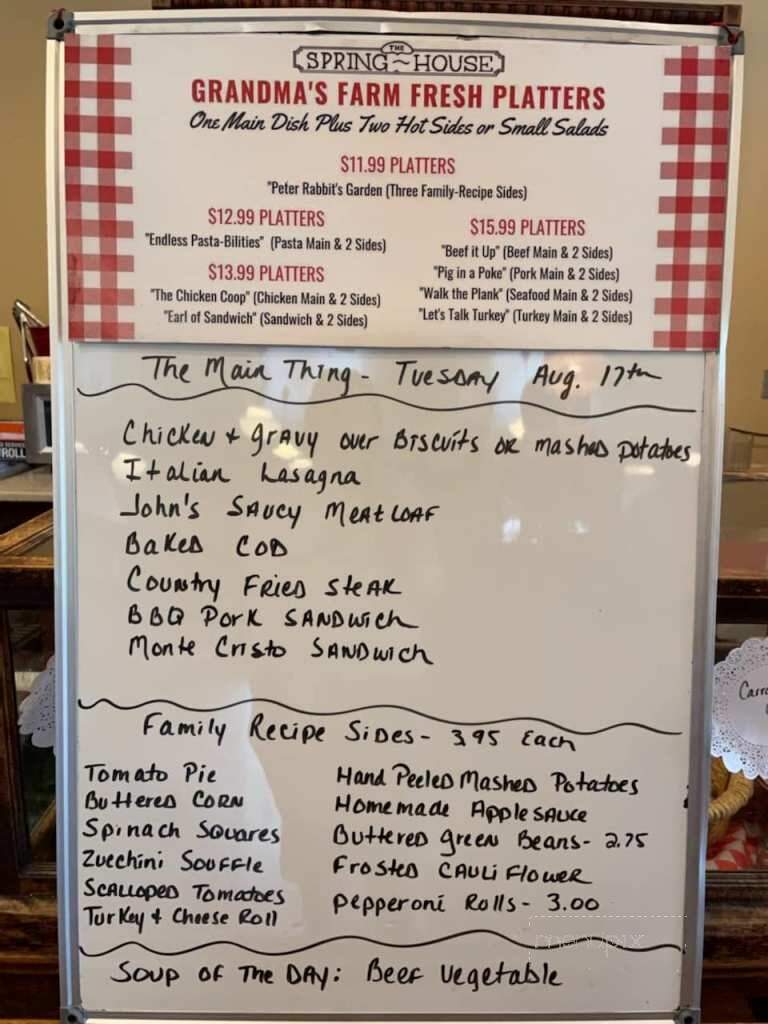 THE
SPRING~HOUSE
GRANDMA'S FARM FRESH PLATTERS
One Main Dish Plus Two Hot Sides or Small Salads
$11.99 PLATTERS
"Peter Rabbit's Garden (Three Family-Recipe Sides)
$12.99 PLATTERS
"Endless Pasta-Bilities" (Pasta Main & 2 Sides)
$13.99 PLATTERS
"The Chicken Coop" (Chicken Main & 2 Sides)
"Earl of Sandwich" (Sandwich & 2 Sides)
$15.99 PLATTERS
"Beef it Up" (Beef Main & 2 Sides)
"Pig in a Poke" (Pork Main & 2 Sides)
"Walk the Plank" (Seafood Main & 2 Sides)
"Let's Talk Turkey" (Turkey Main & 2 Sides)
The Main Thing - Tuesday Aug. 17th
Chicken + gravy over Biscuits or mashed potatoes
Italian Lasagna
John's Saucy Meatloaf
Baked Cod
Country Fried Steak
BBQ Pork Sandwich
Monte Cristo Sandwich
Family Recipe Sides - 3.95 Each
Tomato Pie
Buttered Corn
Spinach Squares
Zucchini Souffle
Scalloped Tomatoes
Turkey + Cheese Roll
Hand Peeled Mashed Potatoes
Homemade Applesauce
Buttered green Beans - 2.75
Frosted Cauliflower
Pepperoni Rolls - 3.00
Soup of the Day: Beef Vegetable
menupix